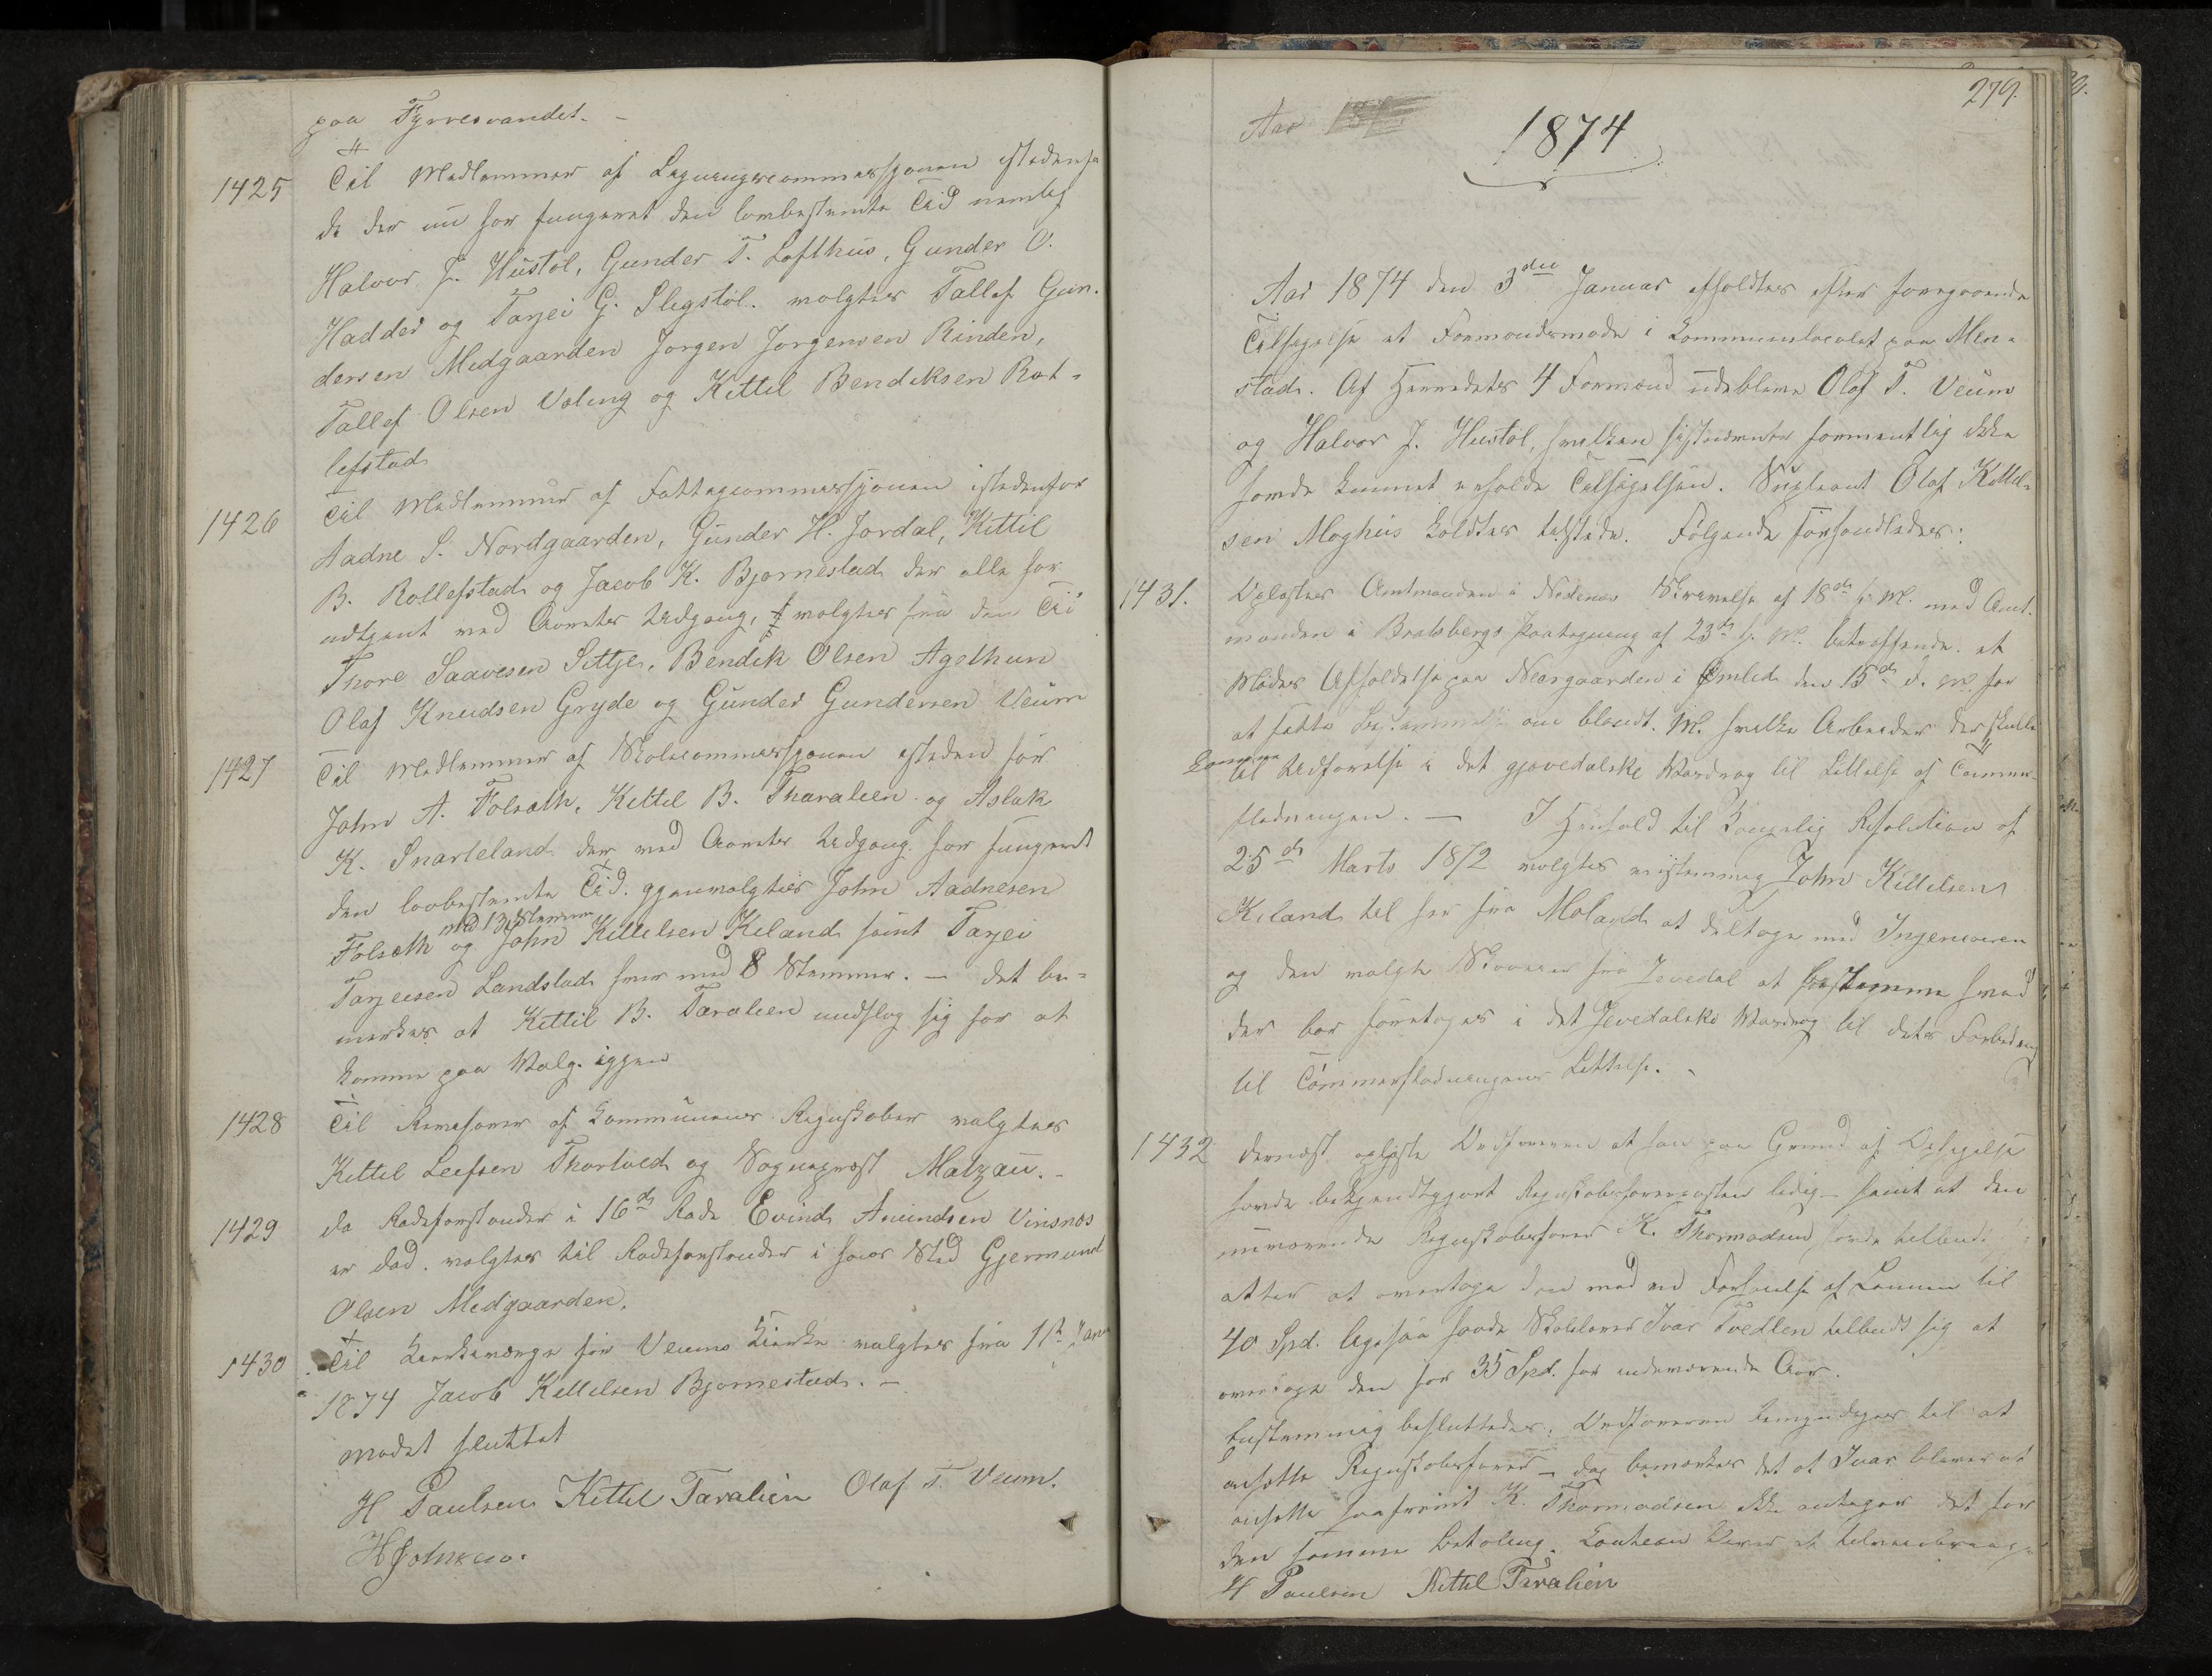 paa Fyrresvandet. –
1425 Til Medlemmer af Ligningscommissjonen istedenfor
de der nu har fungeret den lovbestemte Tid nemlig
Halvor J. Hustøl, Gunder T. Lofthus, Gunder O.
Hadder og Tarjei G. Slegstøl. valgtes Tallef Gun-
dersen Midgaarden Jørgen Jørgensen Rinden,
Tallef Olsen Valing og Kittil Bendiksen Rol-
lefstad
1426 Til Medlemmer af Fattigcommissjonen istedenfor
Aadne S. Nordgaarden, Gunder H. Jordal, Kittil
B. Rollefstad og Jacob K. Bjørnestad der alle har
udtjent ved Aarets Udgang, valgtes fra den Tid
Thore Saavesen Sittje, Bendik Olsen Agelhun
Olaf Knudsen Gryde og Gunder Gundersen Veum
1427 Til Medlemmer af Skolecommissjonen isteden for
John A. Folsæth, Kittil B. Tharalien og Aslak
K. Snarteland der ved Aarets Udgang har fungeret
den lovbestemte Tid. gjenvalgtes John Aadnesen
med 13 Stemmer
Folsæth og John Kittilsen Kiland samt Tarjei
Tarjeisen Landstad hver med 8 Stemmer. – Det be-
mærkes at Kittil B. Taralien undslog sig for at
komme paa Valg igjen
1428 Til Revisorer af Kommunens Regnskaber valgtes
Kittil Leifsen Thortved og Sognepræst Matzau. –
1429 Da Rodeforstander i 16de Rode Eivind Anundsen Vinsnes
er død. valgtes til Rodeforstander i hans Sted Gjermund
Olsen Midgaarden.
1430 Til Kirkeværge for Veums Kirke valgtes fra 1ste Janu
1874 Jacob Kittilsen Bjørnestad. –
Mødet sluttet
H Paulsen Kittil Taralien Olaf T. Veum.
H Johnsen.
279.
Aar
1874
Aar 1874 den 3die Januar afholdtes efter foregaaende
Tilsigelse et Formandsmøde i Kommunelocalet paa Mon-
stad. Af Herredets 4 Formænd udebleve Olaf T. Veum
og Halvor J. Hustøl, hvilken sidstnævnte formentlig ikke
havde kunnet erholde Tilsigelsen. Supleant Olaf Kittil-
sen Moghus holdtes tilstede. Følgende forhandledes:
1431. Oplæstes Amtmanden i Nedenæs Skrivelse af 18de f. M. med Amt-
manden i Bratsbergs Paategning af 23de f. M. betræffende et
Mødes Afholdelse paa Neergaarden i Omlid den 15de d. M. for
at fatte Bestemmelse om blandt. M. hvilke Arbeider der skulle
komme
til Udførelse i det gjøvedalske Vasdrag til Lettelse af Tømmer-
flødningen. – I Henhold til Kongelig Resolution af
25de Marts 1872 valgtes enstemmig John Kittilsen
Kiland til her fra Moland at deltage med Ingenieuren
og den valgte Skovseer fra Jevedal at bestemme hvad
der bør foretages i det Jevedalske Vasdrag til dets Forbedring
til Tømmerflødningens Lettelse. –
1432 Dernæst oplyste Ordføreren at han paa Grund af Opsigelse
havde bekjendtgjort Regnskabsførerposten ledig – samt at den
nuværende Regnskabsfører K. Thormodsen havde tilbudt sig
atter at overtage den mod en Forhøielse af Lønnen til
40 Spd. ligesaa havde Skolelærer Ivar Tvedten tilbudt sig at
overtage den for 35 Spd. for indeværende Aar.
Enstemmig besluttedes: Ordføreren bemyndiges til at
ansætte Regnskabsfører – dog bemærkes det at Ivar bliver at
ansætte saafremt K. Thormodsen ikke antager det for
den samme Betaling.
H Paulsen Kittil Taralien